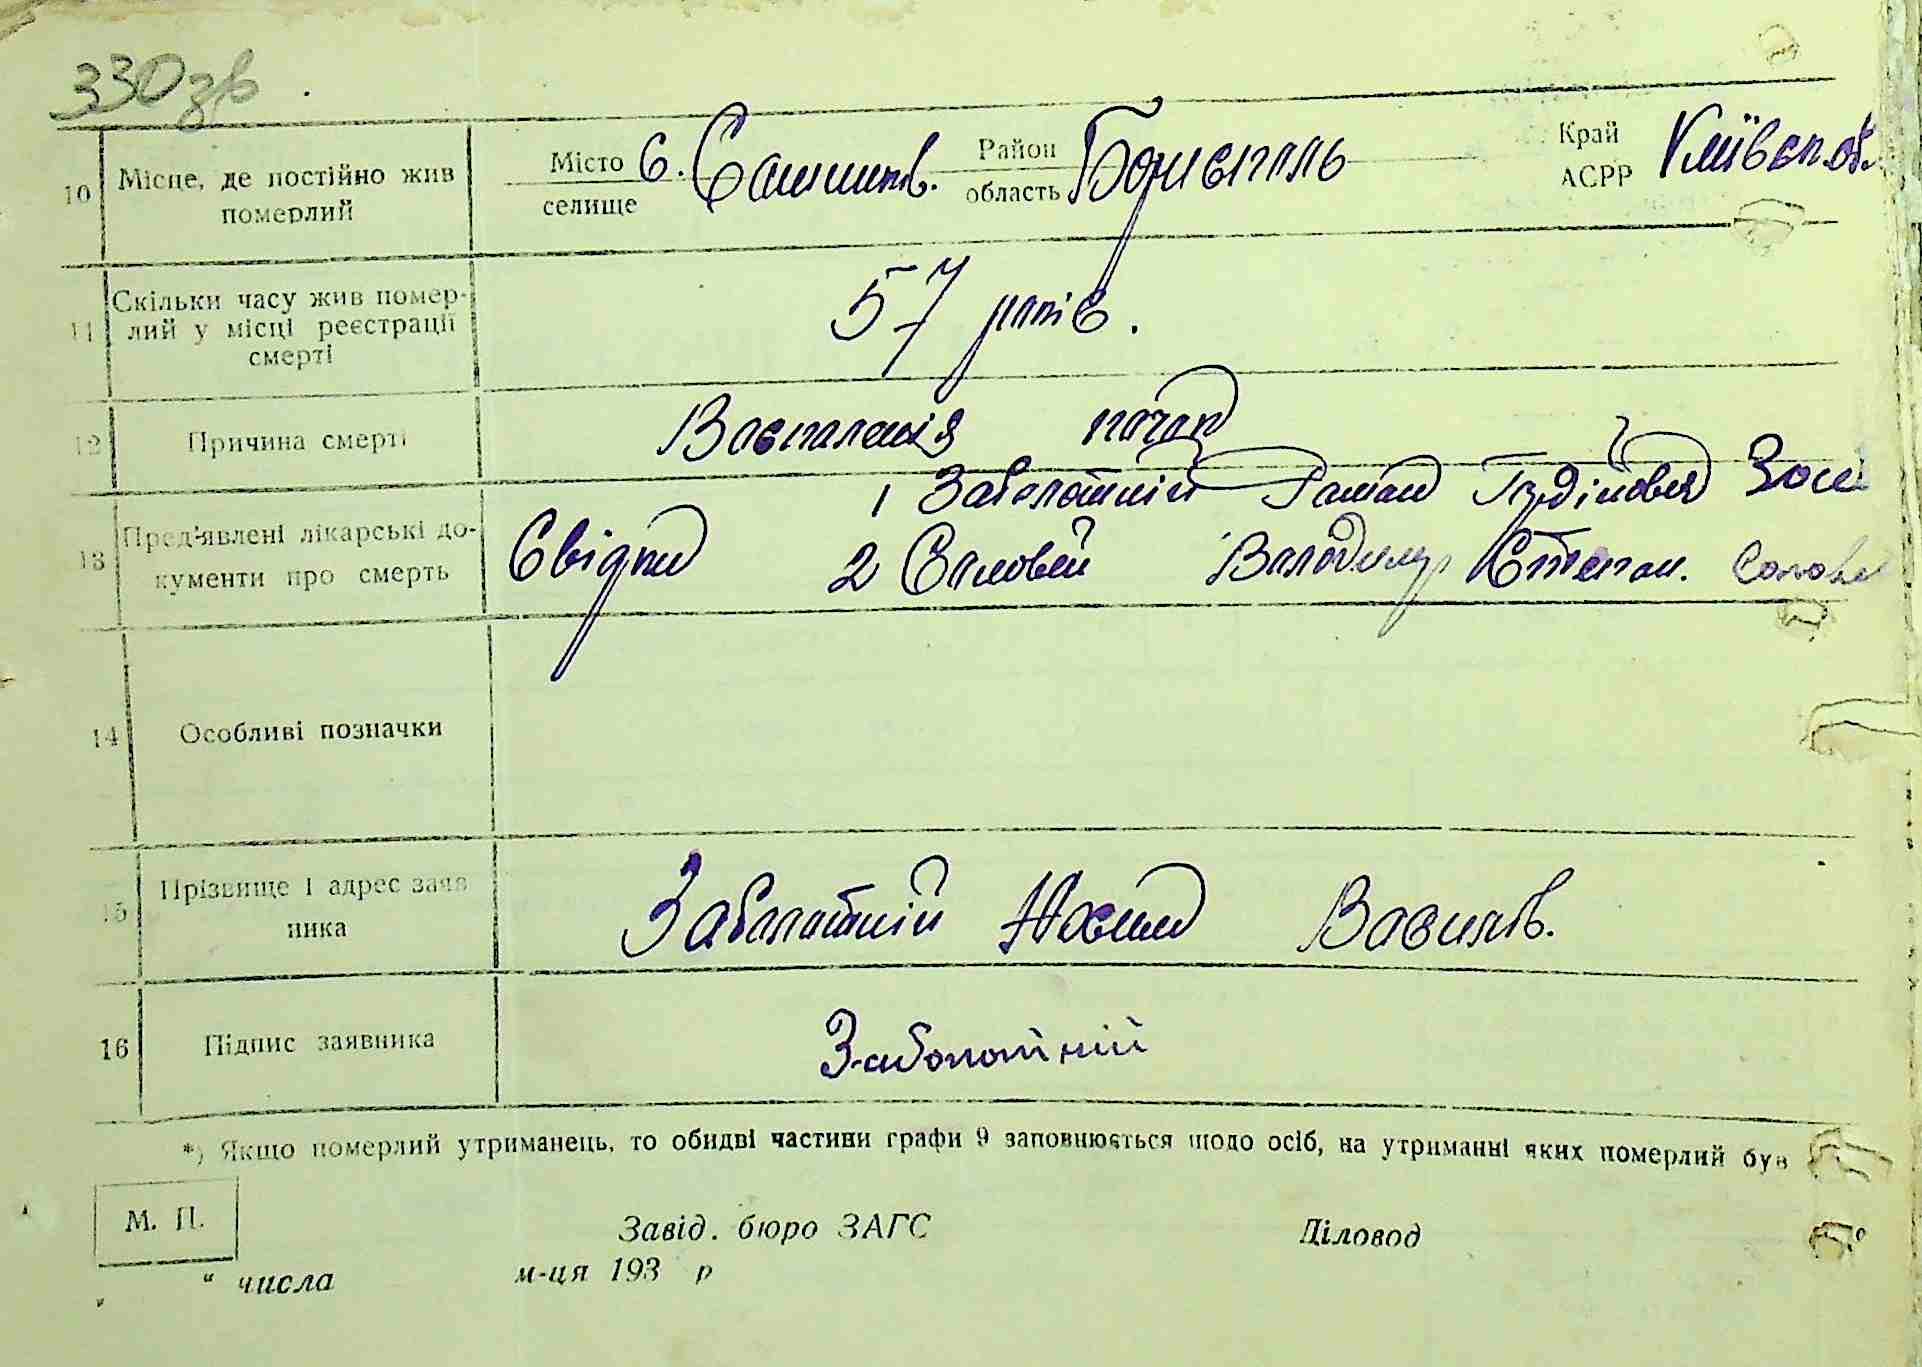 330зв
10 Місце, де постійно жив померлий Місто селище С. Сошників. Район область Бориспіль Край АСРР Київськ об.
11 Скільки часу жив помер-
лий у місці реєстрації
смерті
57 років.
12 Причина смерті Воспаленія почок
13 Пред'явлені лікарські до-
кументи про смерть
Свідки 1 Заболотний Роман
2 Соловей Володимир Степан. Солове
14 Особливі позначки
15 Прізвище і адрес заяв
ника
Заболотній Юхим Василів.
16 Підпис заявника Заболотній
*) Якщо померлий утриманець, то обидві частини графи 9 заповнюється щодо осіб, на утриманні яких померлий був
М. П.
Завід. бюро ЗАГС Діловод
" числа м-ця 193 р